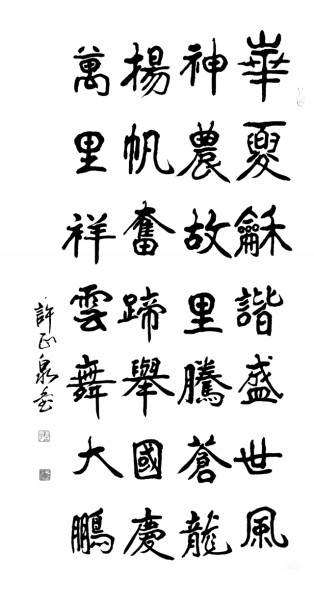 華夏龢諧盛世風
神農故里騰蒼龍
揚帆奮蹄舉國慶
萬里祥雲舞大鵬
許正泉書